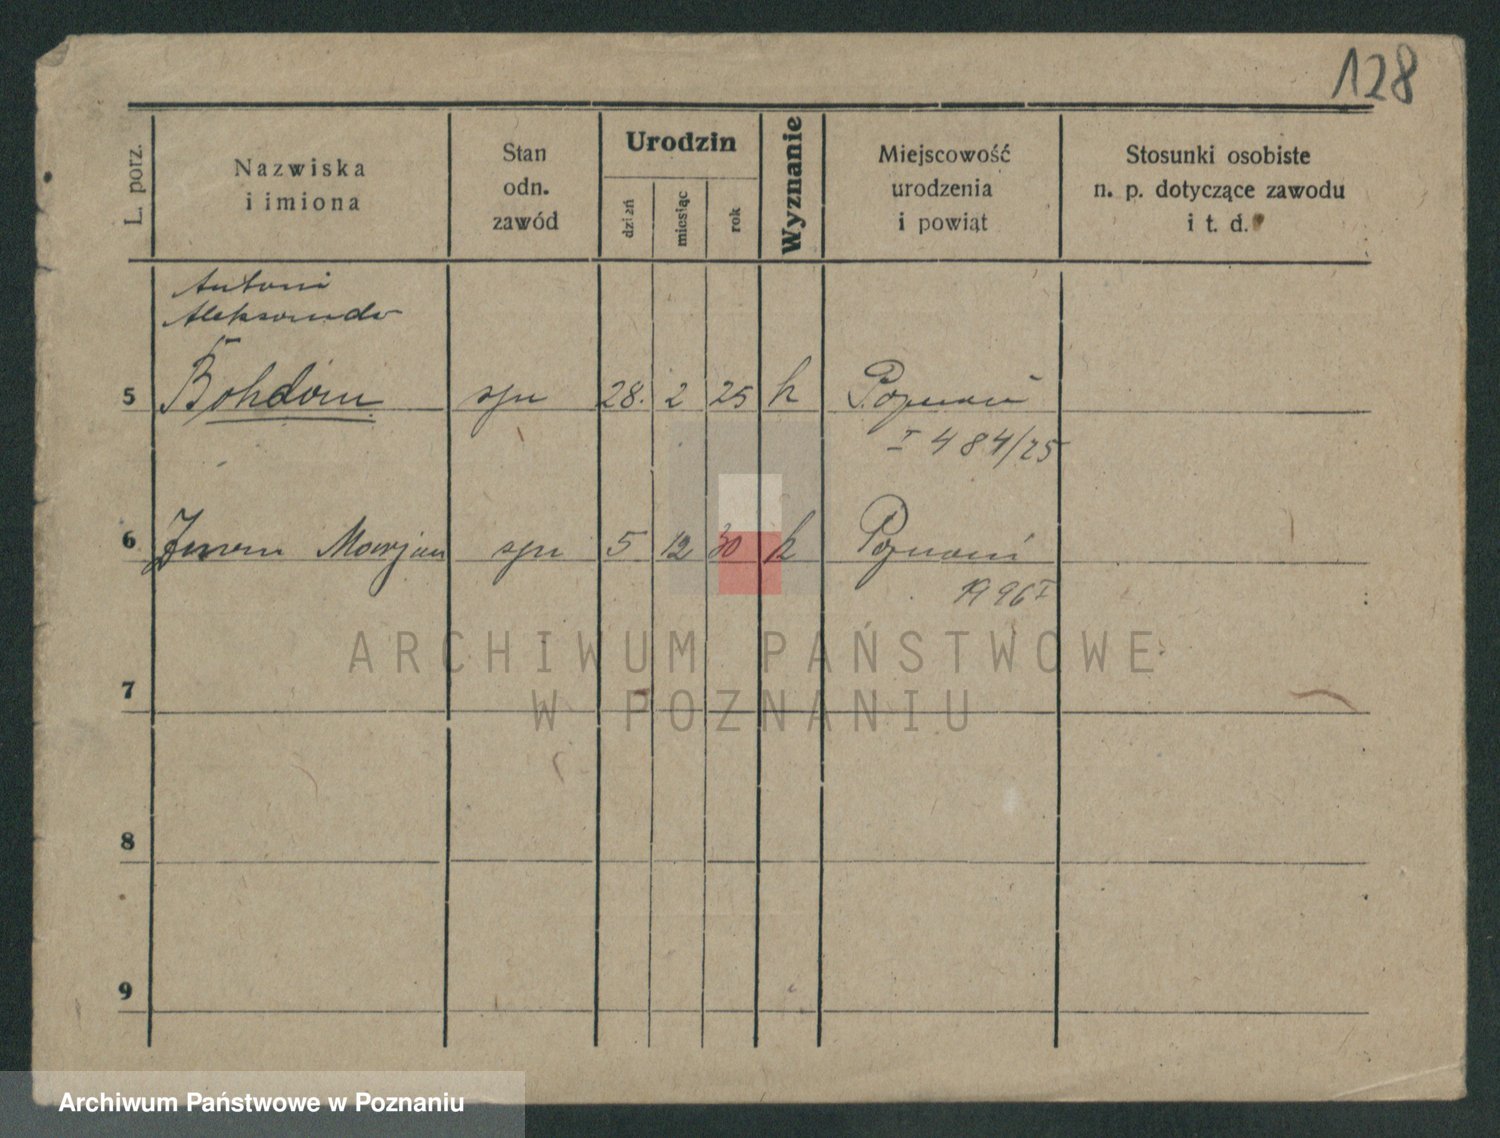 128
L. porz.
Nazwiska
i imiona
Stan
odn.
zawód
Urodzin
dzień
miesiąc
rok
Wyznanie
Miejscowość
urodzenia
i powiat
Stosunki osobiste
n. p. dotyczące zawodu
i t. d.
Antoni
Aleksander
5 Bohdan syn 28. 2 25 k Poznań
I 484/25
6 Marjan syn 5 12 30 k Poznań
1996 I
7
8
9
ARCHIWUM PAŃSTWOWE
W POZNANIU
Archiwum Państwowe w Poznaniu